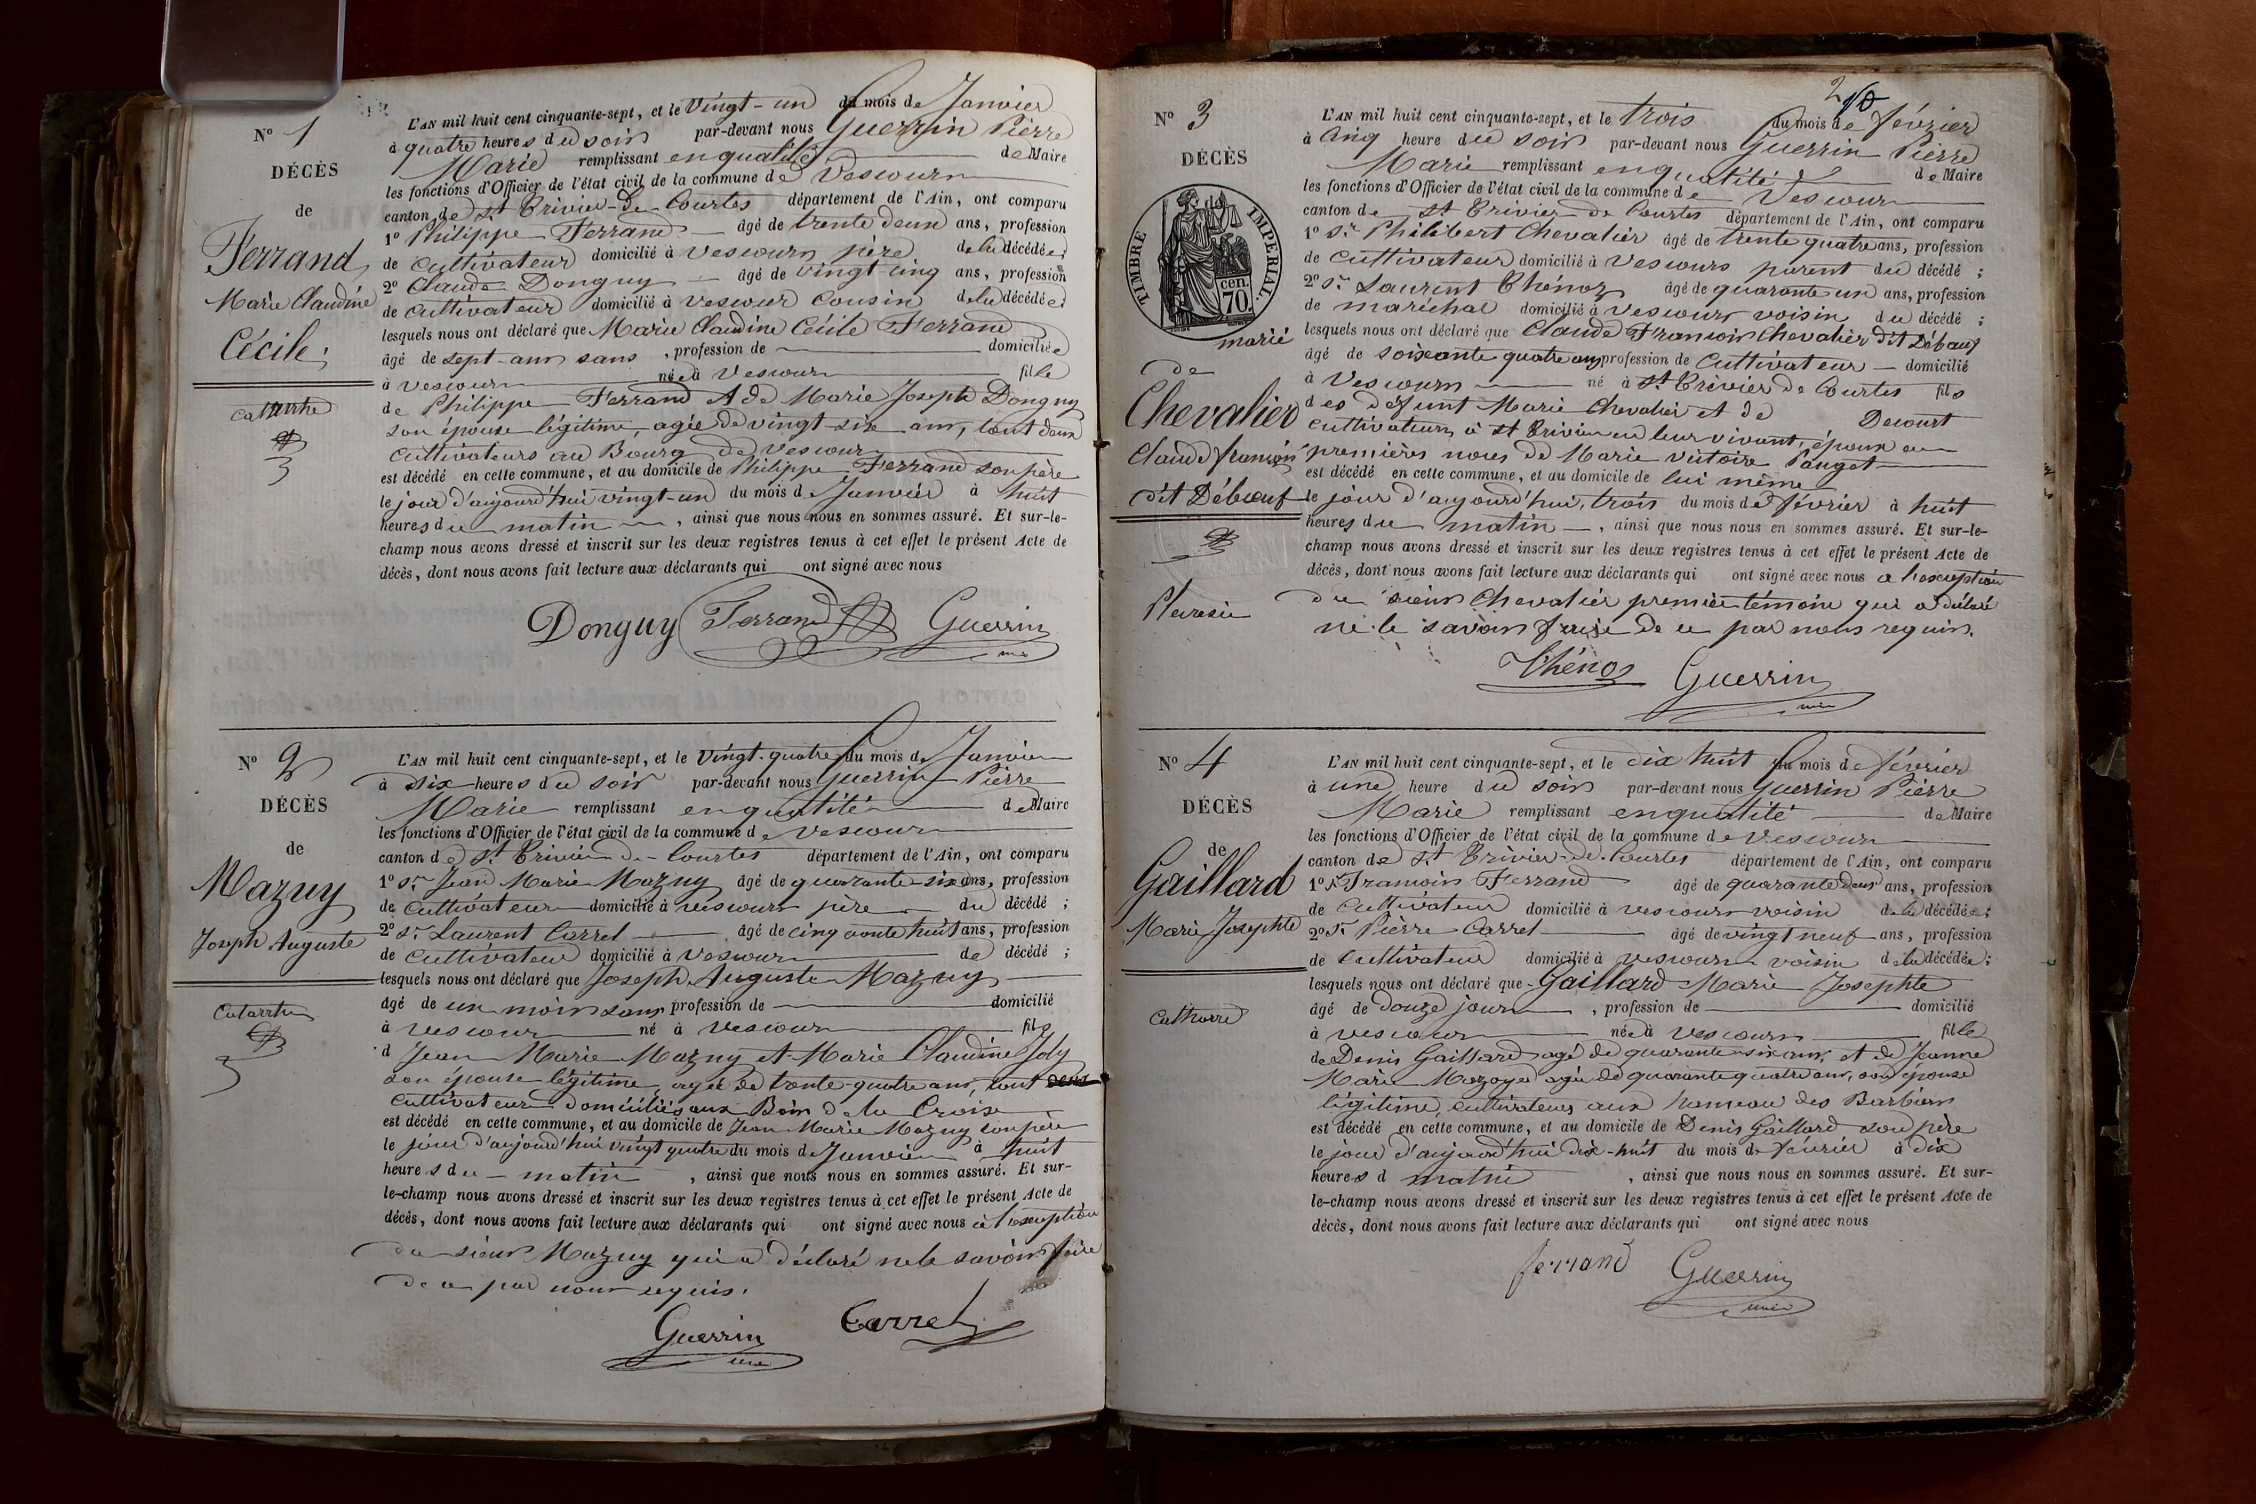 N° 1
DÉCÈS
de
Ferrand
Marie Claudine
Cécile
Catarrhe
L'AN mil huit cent cinquante-sept, et le Vingt-un du mois de Janvier
à quatre heures du soir par-devant nous Guerrin Pierre
Marie remplissant en qualité de Maire
les fonctions d'Officier de l'état civil de la commune de Vescours
canton de St Trivier-de-Courtes département de l'Ain, ont comparu
1° Philippe Ferrand âgé de trente deux ans, profession
de Cultivateur domicilié à Vescours père de la décédée;
2° Claude Donguy âgé de vingt cinq ans, profession
de Cultivateur domicilié à Vescour Cousin de la décédée;
lesquels nous ont déclaré que Marie Claudine Cécile Ferrand
âgé de sept ans sans, profession de domiciliée
à Vescours née à Vescours fille
de Philippe Ferrand et de Marie Joseph Donguy
son épouse légitime, agée de vingt-six ans, tout deux
cultivateurs au Bourg de Vescour
est décédé en cette commune, et au domicile de Philippe Ferrand son père
le jour d'aujourd'hui vingt-un du mois de Janvier à huit
heures du matin, ainsi que nous nous en sommes assuré. Et sur-le-
champ nous avons dressé et inscrit sur les deux registres tenus à cet effet le présent Acte de
décès, dont nous avons fait lecture aux déclarants qui ont signé avec nous
Donguy Ferrand Guerrin
N° 2
DÉCÈS
de
Mazuy
Joseph Auguste
Catarrhe
L'AN mil huit cent cinquante-sept, et le Vingt-quatre du mois de Janvier
à six heures du soir par-devant nous Guerrin Pierre
Marie remplissant en qualité de Maire
les fonctions d'Officier de l'état civil de la commune de Vescour
canton de St Trivier-de-Courtes département de l'Ain, ont comparu
1° Sr Jean Marie Mazuy âgé de quarante-six ans, profession
de Cultivateur domicilié à Vescours père du décédé;
2° Sr Laurent Carrel âgé de cinquante huit ans, profession
de Cultivateur domicilié à Vescour de décédé;
lesquels nous ont déclaré que Joseph Auguste Mazuy
âgé de un mois sans profession de domicilié
à Vescour né à Vescour fils
d Jean Marie Mazuy et Marie Claudine Joly
son épouse légitime, agée de trente-quatre ans, tout deux
Cultivateurs domiciliés aux Bois de la Croix
est décédé en cette commune, et au domicile de Jean Marie Mazuy son père
le jour d'aujourd'hui vingt quatre du mois de Janvier à huit
heures du matin, ainsi que nous nous en sommes assuré. Et sur-
le-champ nous avons dressé et inscrit sur les deux registres tenus à cet effet le présent Acte de
décès, dont nous avons fait lecture aux déclarants qui ont signé avec nous à l'exception
du sieur Mazuy qui a déclaré ne le savoir faire
de ce par nous requis.
Guerrin Carrel
N° 3
DÉCÈS
TIMBRE IMPÉRIAL.
cen.
70.
marié
de
Chevalier
Claude françois
dit Débœuf
Pleuresie
L'AN mil huit cent cinquante-sept, et le trois du mois de février
à cinq heure du soir par-devant nous Guerrin Pierre
Marie remplissant en qualité de Maire
les fonctions d'Officier de l'état civil de la commune de Vescour
canton de St Trivier de Courtes département de l'Ain, ont comparu
1° Sr Philibert Chevalier âgé de trente quatre ans, profession
de Cultivateur domicilié à Vescours parent du décédé;
2° Sr Laurent Thénoz âgé de quarante un ans, profession
de maréchal domicilié à Vescours voisin du décédé;
lesquels nous ont déclaré que Claude François Chevalier dit Débœuf
âgé de soixante quatre ans profession de Cultivateur domicilié
à Vescours né à St Trivier de Courtes fils
des défunt Marie Chevalier et de Decourt
cultivateurs à St Trivier en leur vivant, époux en
premières noces de Marie Victoire Pauget
est décédé en cette commune, et au domicile de lui même
le jour d'aujourd'hui, trois du mois de février à huit
heures du matin, ainsi que nous nous en sommes assuré. Et sur-le-
champ nous avons dressé et inscrit sur les deux registres tenus à cet effet le présent Acte de
décès, dont nous avons fait lecture aux déclarants qui ont signé avec nous à l'exception
du sieur Chevalier premier témoin qui a déclaré
ne le savoir faire de ce par nous requis.
Thénoz Guerrin
N° 4
DÉCÈS
de
Gaillard
Marie Josephte
Catharre
L'AN mil huit cent cinquante-sept, et le dix huit du mois de février
à une heure du soir par-devant nous Guerrin Pierre
Marie remplissant en qualité de Maire
les fonctions d'Officier de l'état civil de la commune de Vescour
canton de St Trivier-de-Courtes département de l'Ain, ont comparu
1° Sr François Ferrand âgé de quarante deux ans, profession
de Cultivateur domicilié à Vescours voisin de la décédée;
2° Sr Pierre Carrel âgé de vingt neuf ans, profession
de Cultivateur domicilié à Vescours voisin de la décédée;
lesquels nous ont déclaré que Gaillard Marie Josephte
âgé de douze jours, profession de domicilié
à Vescour née à Vescours fille
de Denis Gaillard agé de quarante-six ans, et de Jeanne
Marie Mazoyer agée de quarante quatre ans, son épouse
légitime, cultivateurs aux hameau des Barbiers
est décédé en cette commune, et au domicile de Denis Gaillard son père
le jour d'aujourd'hui dix-huit du mois de février à dix
heures d matin, ainsi que nous nous en sommes assuré. Et sur-
le-champ nous avons dressé et inscrit sur les deux registres tenus à cet effet le présent Acte de
décès, dont nous avons fait lecture aux déclarants qui ont signé avec nous
ferrand Guerrin